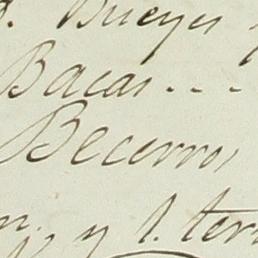 Bueyes
Bacas...
Becerros
y l. tern